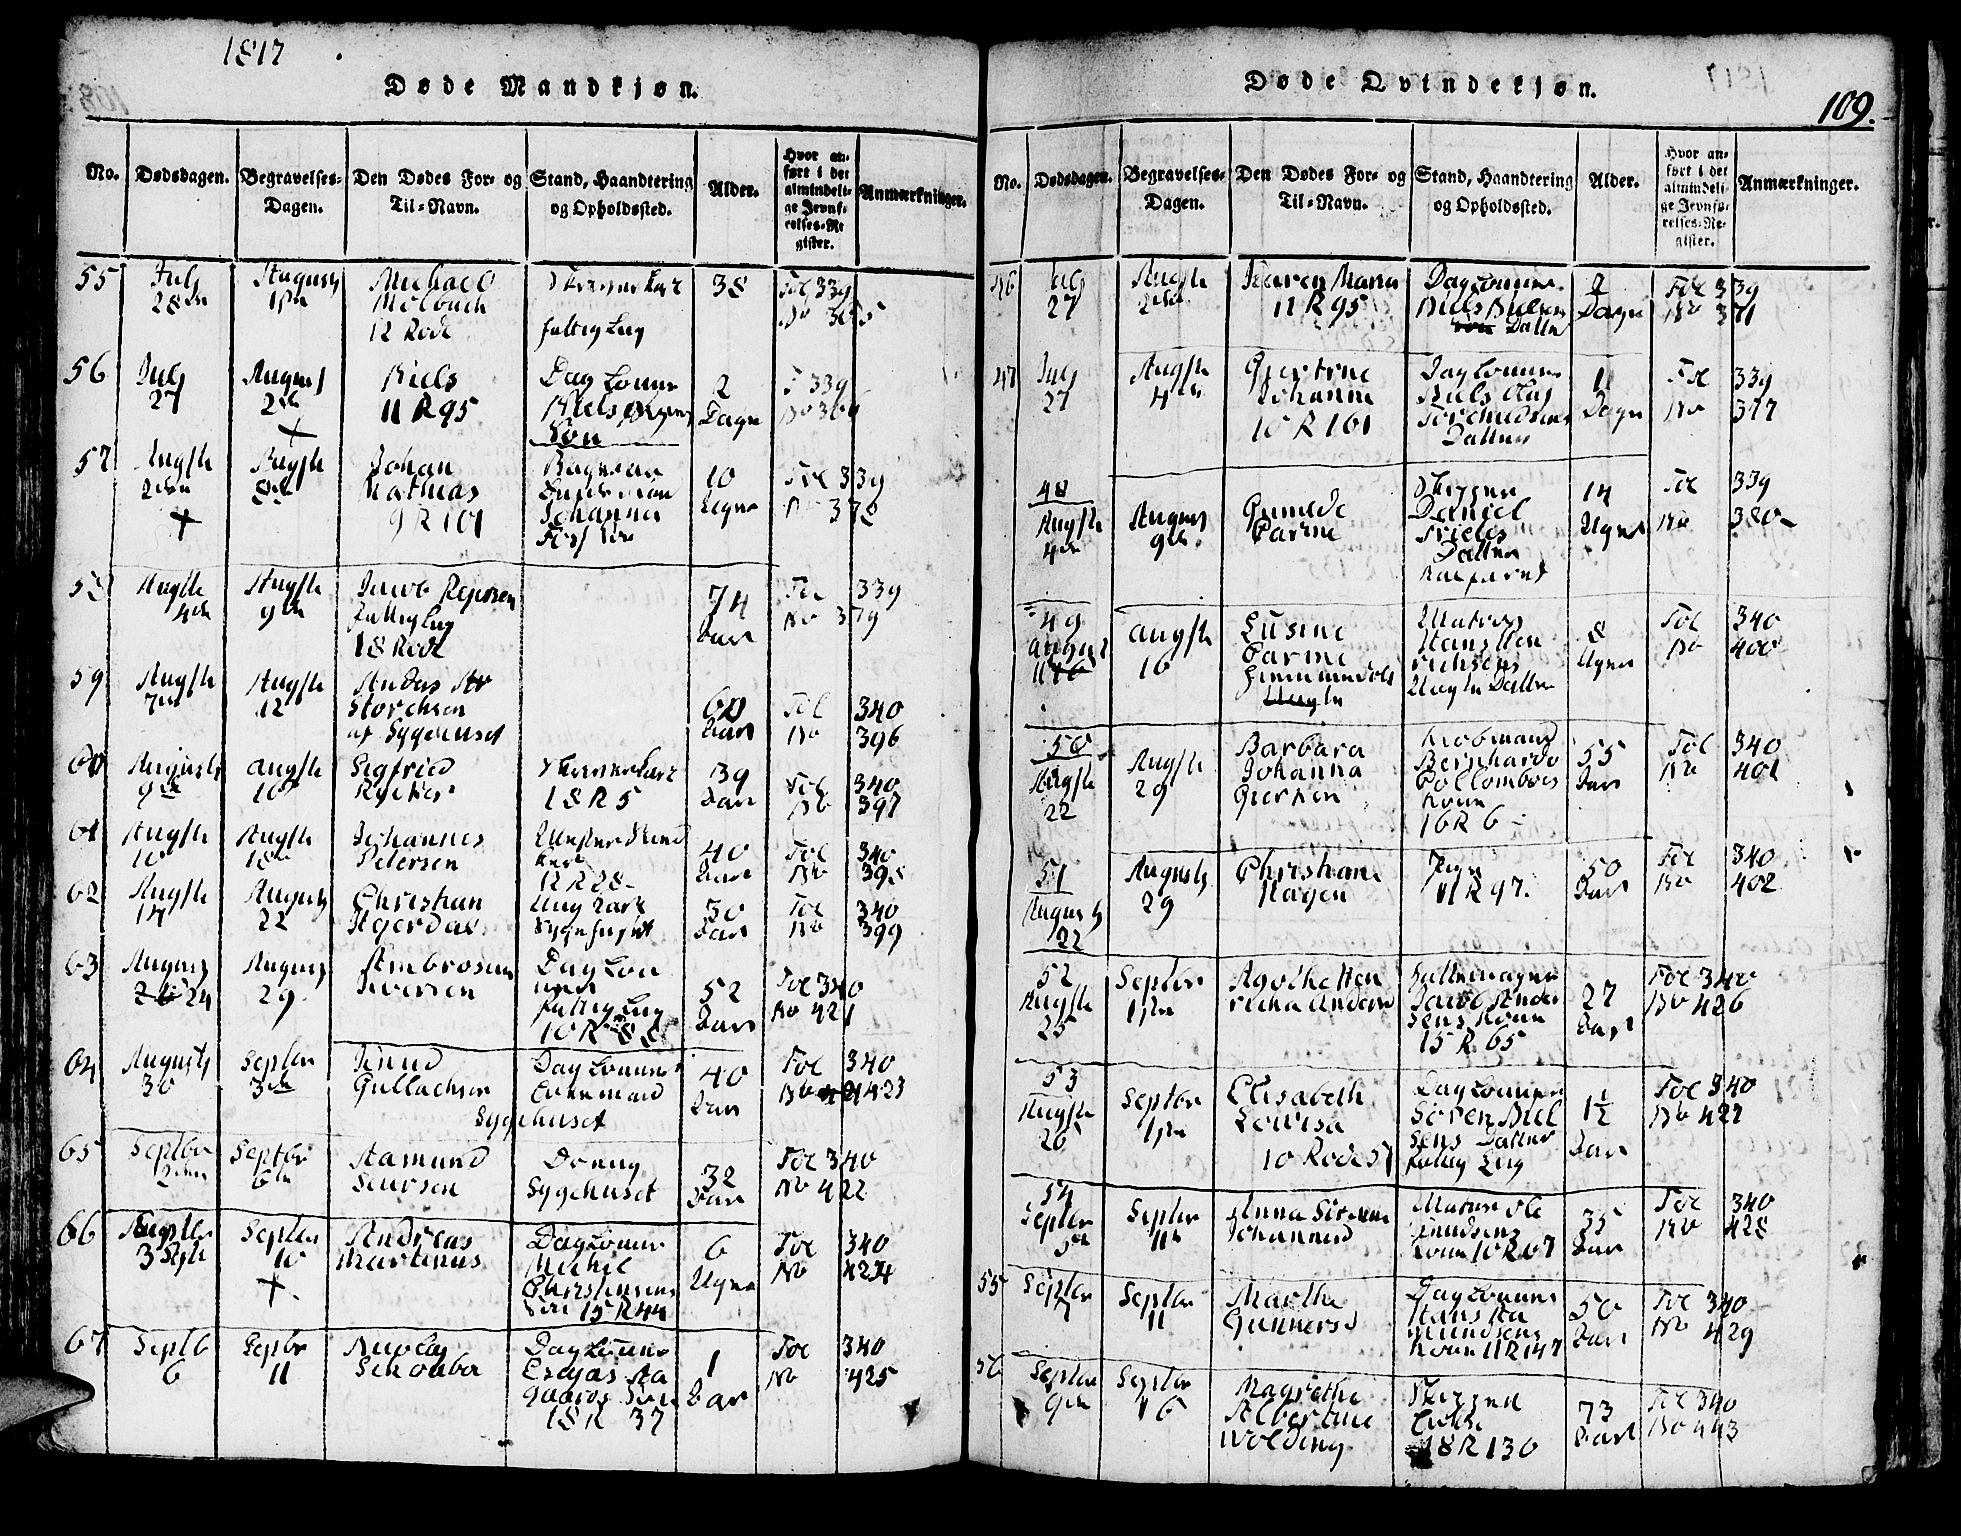 1817
Døde Mandkjøn.
No.
Dødsdagen.
Begravelses-
Dagen.
Den Dødes For- og
Til-Navn.
Stand, Haandtering
og Opholdssted.
Alder.
Hvor an-
ført i det
almindeli-
ge Jevnfø-
relses-Re
gister.
Anmærkninger.
55
July
28de
August
1ste
Michael
12 Rode
fattig Lig
38
Fol 339
No 365
56
July
27
August
2de
Niels
11 R 95
Dag Lønner
Niels
Søn
2
Dage
F 339
No 366
57
Augste
Augste
8de
Johan
Mathias
9 R 101
Johannes
10
Uger
Fol 339
No 378
58
Augste
4de
Augste
9de
Jacob
fattig Lig
18 Rode
74
Aar
Fol 339
No 379
59
Augste
7de
Augste
12
af Sygehuset
60
Aar
Fol 340
No 396
60
Augusty
9de
Augste
16
Sigfried
18 R 5
39
Aar
Fol 340
No 397
61
Augste
Augste
18de
Johannes
Petersen
12 R 28
40
Aar
Fol 340
No 398
62
Augste
17
August
22
Christian
Ung Karl
Sygehuset
30
Aar
Fol 340
No 399
63
August
24
August
29
Iversen
Dag Løn
ner
fattig Lig
10 R 88
52
Aar
Fol 340
No 421
64
Augusty
30
Septbr
3de
Knud
Gullachsen
Dag Lønner
Sygehuset
40
Aar
Fol 340
No 423
65
Septbr
2den
Septbr
6te
Aamund
Dreng
Sygehuset
32
Aar
Fol 340
No 422
66
Septbr
3
Septbr
10
Andreas
Martinus
Dag Lønner
Michel
Christensens
Søn 15 R 44
6
Uger
Fol 340
No 424
67
Septb
6
Septbr
11
Nicolay
Schouboe
Dag Lønner
Søn
18 R 37
1
Aar
Fol 340
No 425
Døde Qvindekjøn.
109.
No.
Dødsdagen.
Begravelses-
Dagen.
Den Dødes For- og
Til-Navn.
Stand, Haandtering
og Opholdssted.
Alder.
Hvor an-
ført i det
almindeli-
ge Jevnfø-
relses-Re-
gister.
Anmærkninger.
46
July
27
Augste
2den
Karen Maria
11 R 95
Dag Lønner
Niels Nielsens
Datter
2
Dage
Fol 339
No 371
47
July
27
Augste
4de
Giertrue
Johanne
10 R 161
Dag Lønner
Niels
Datter
1
Dage
Fol 339
No 377
48
Augste
4de
August
9de
Daniel
Datter
14
Uger
Fol 339
No 380
49
August
Augste
16
Lusine
Matros
Hans Hen
richsens
Datter
8
Uger
Fol 340
No 400
50
Augste
22
Augste
29
Barbara
Johanna
Giertsen
Kiøbmand
Bernhardo
Kone
16 R 6
55
Aar
Fol 340
No 401
51
August
22
Augusty
29
Christiane
Hagen
Pige
11 R 97.
50
Aar
Fol 340
No 402
52
Augste
25
Septbr
1ste
Jacob Ander
sens Kone
15 R 65
27
Aar
Fol 340
No 426
53
Augste
26
Septbr
1ste
Elisabeth
Lovisa
10 Rode 57
Dag Lønner
Søren Niel
sens Datter
fattig Lig
1 1/2
Aar
Fol 340
No 427
54
Septbr
5te
Septbr
11te
Anna Sirene
Johannesd
Matros Ole
Knudsens
Kone 10 R 67
35
Aar
Fol 340
No 428
55
Septbr
7
Septbr
11
Marthe
Gunnersd
Dag Lønner
Hans Aa
mundsens
Kone 11 R 147
50
Aar
Fol 340
No 429
56
Septbr
9de
Septbr
16
Magrethe
Albertine
Wolding
Skipper
Enke
18 R 130
73
Aar
Fol 340
No 443